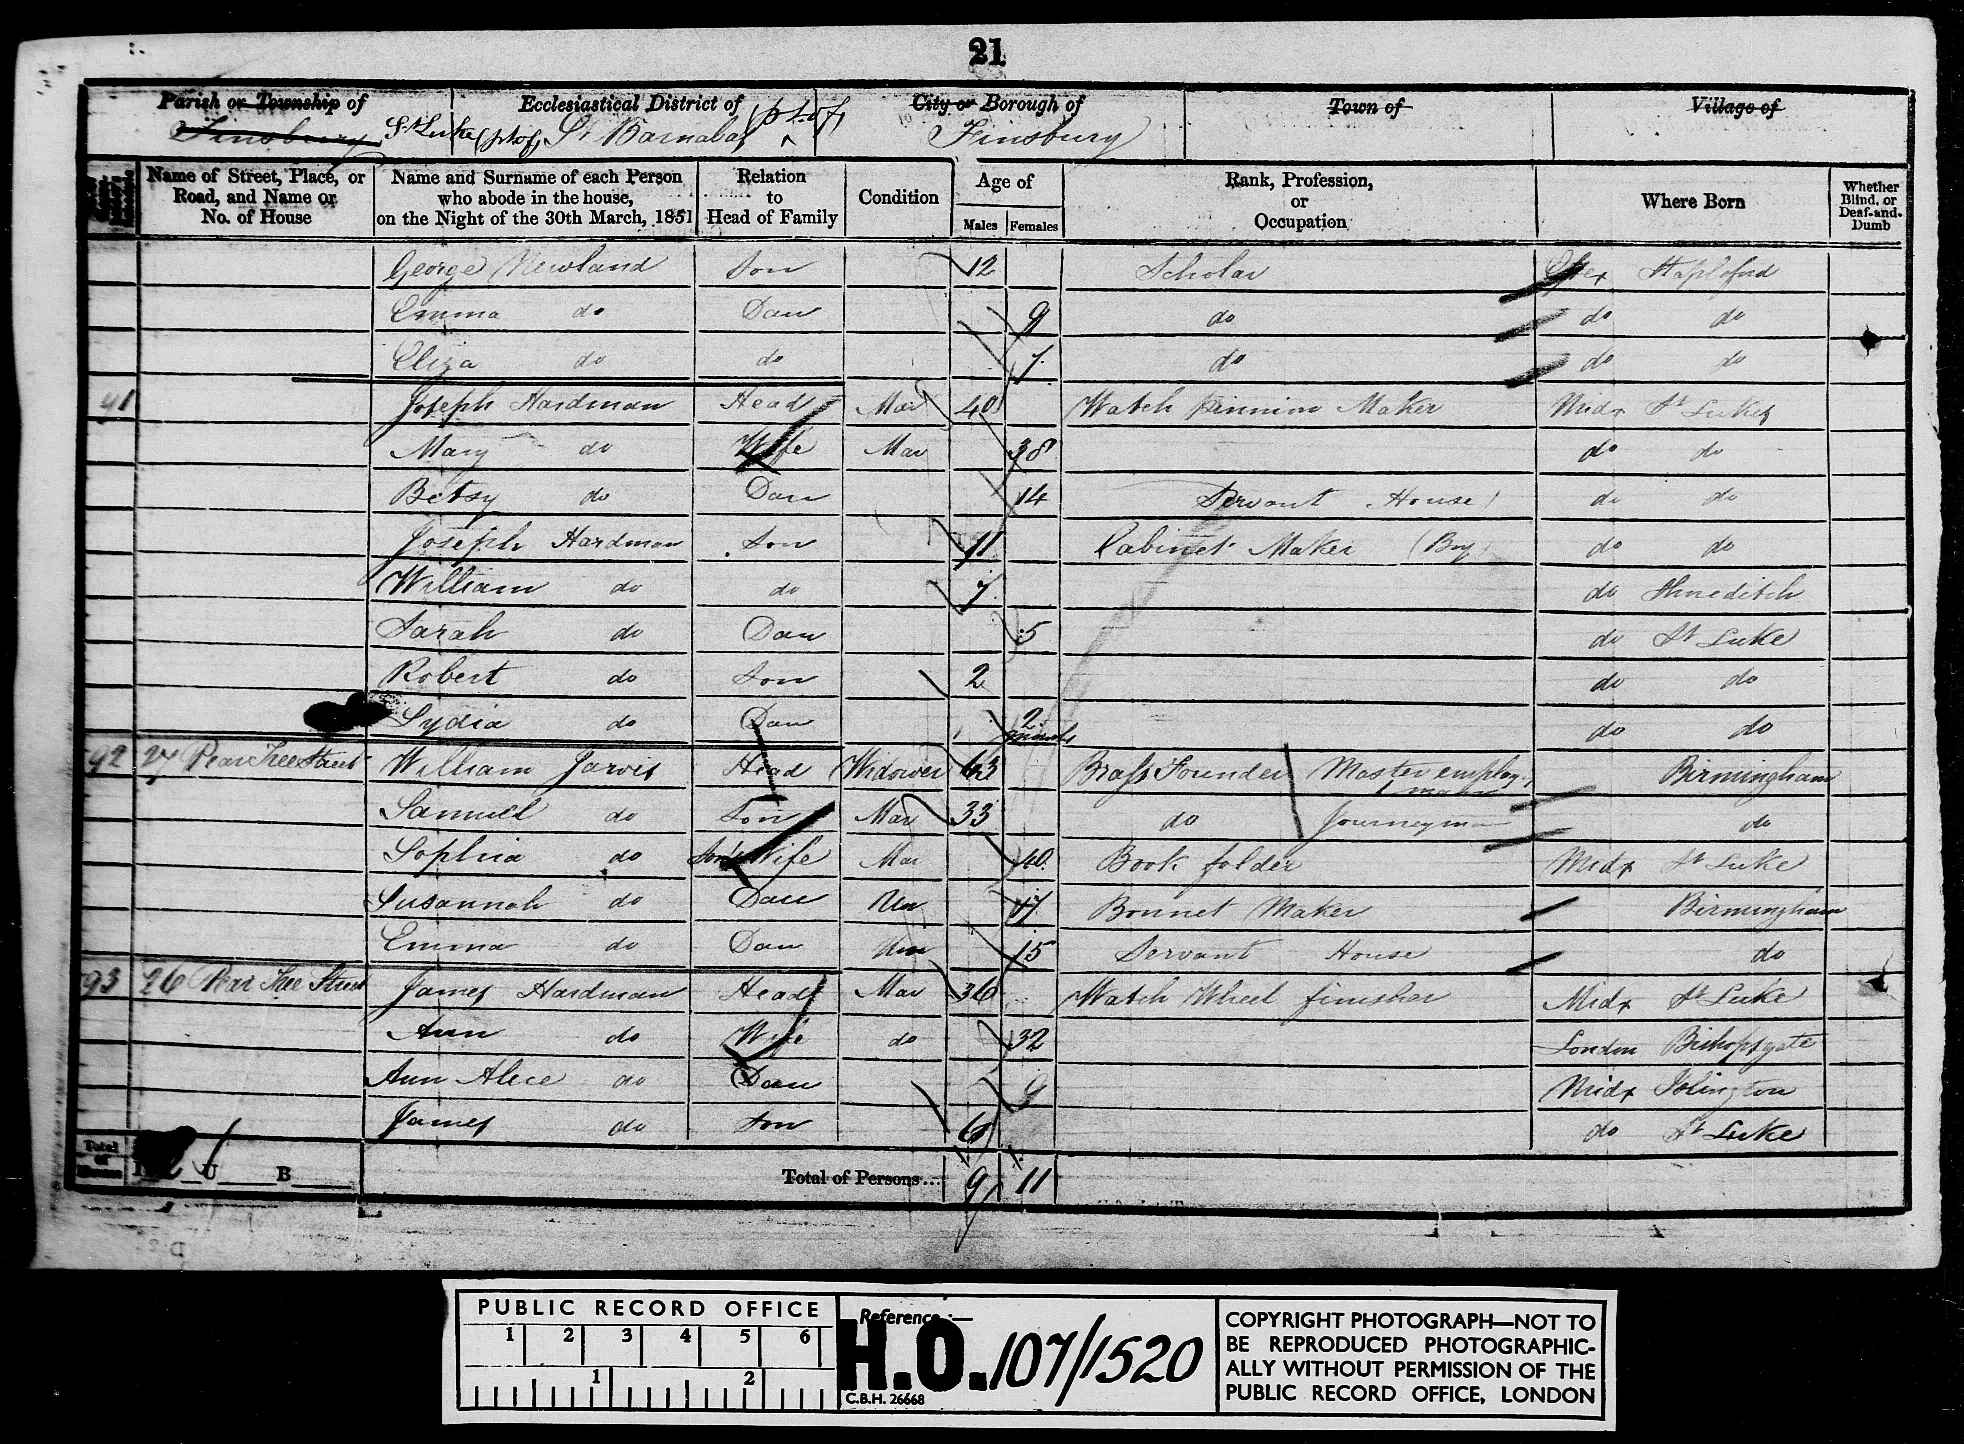 21
Parish or Township of Ecclesiastical District of City or Borough of Town of Village of
Finsbury St Luke (pt of) St Barnabas (pt of) Finsbury
Name of Street, Place, or Road, and Name or No. of House
Name and Surname of each Person who abode in the house, on the Night of the 30th March, 1851
Relation to Head of Family
Condition
Age of
Males Females
Rank, Profession, or Occupation
Where Born
Whether Blind, or Deaf-and-Dumb
George Newland Son 12 Scholar Essex Stapleford
Emma do Dau 9 do do do
Eliza do do 7 do do do
91 Joseph Hardman Head Mar 40 Watch Pinnion Maker Midx St Lukes
Mary do Wife Mar 38 do do
Betsy do Dau 14 Servant House do do
Joseph Hardman Son 11 Cabinet Maker (Boy) do do
William do do 7 do Shoreditch
Sarah do Dau 5 do St Luke
Robert do Son 2 do do
Lydia do Dau 2 months do do
92 27 Pear Tree Street William Jarvis Head Widower 63 Brass Founder Master employ Birmingham
Samuel do Son Mar 33 do Journeyman do
Sophia do Son's Wife Mar 40 Book folder Midx St Luke
Susannah do Dau Un 17 Bonnet Maker Birmingham
Emma do Dau Un 15 Servant House do
93 26 Pear Tree Street James Hardman Head Mar 36 Watch Wheel finisher Midx St Luke
Ann do Wife do 32 London Bishopsgate
Ann Alice do Dau Midx Islington
James do Son 6 do St Luke
Total of Houses I 2 U B Total of Persons... 9 11
PUBLIC RECORD OFFICE
1 2 3 4 5 6
1 2
Reference:—
H.O. 107/1520
C.B.H. 26668
COPYRIGHT PHOTOGRAPH—NOT TO
BE REPRODUCED PHOTOGRAPHIC-
ALLY WITHOUT PERMISSION OF THE
PUBLIC RECORD OFFICE, LONDON